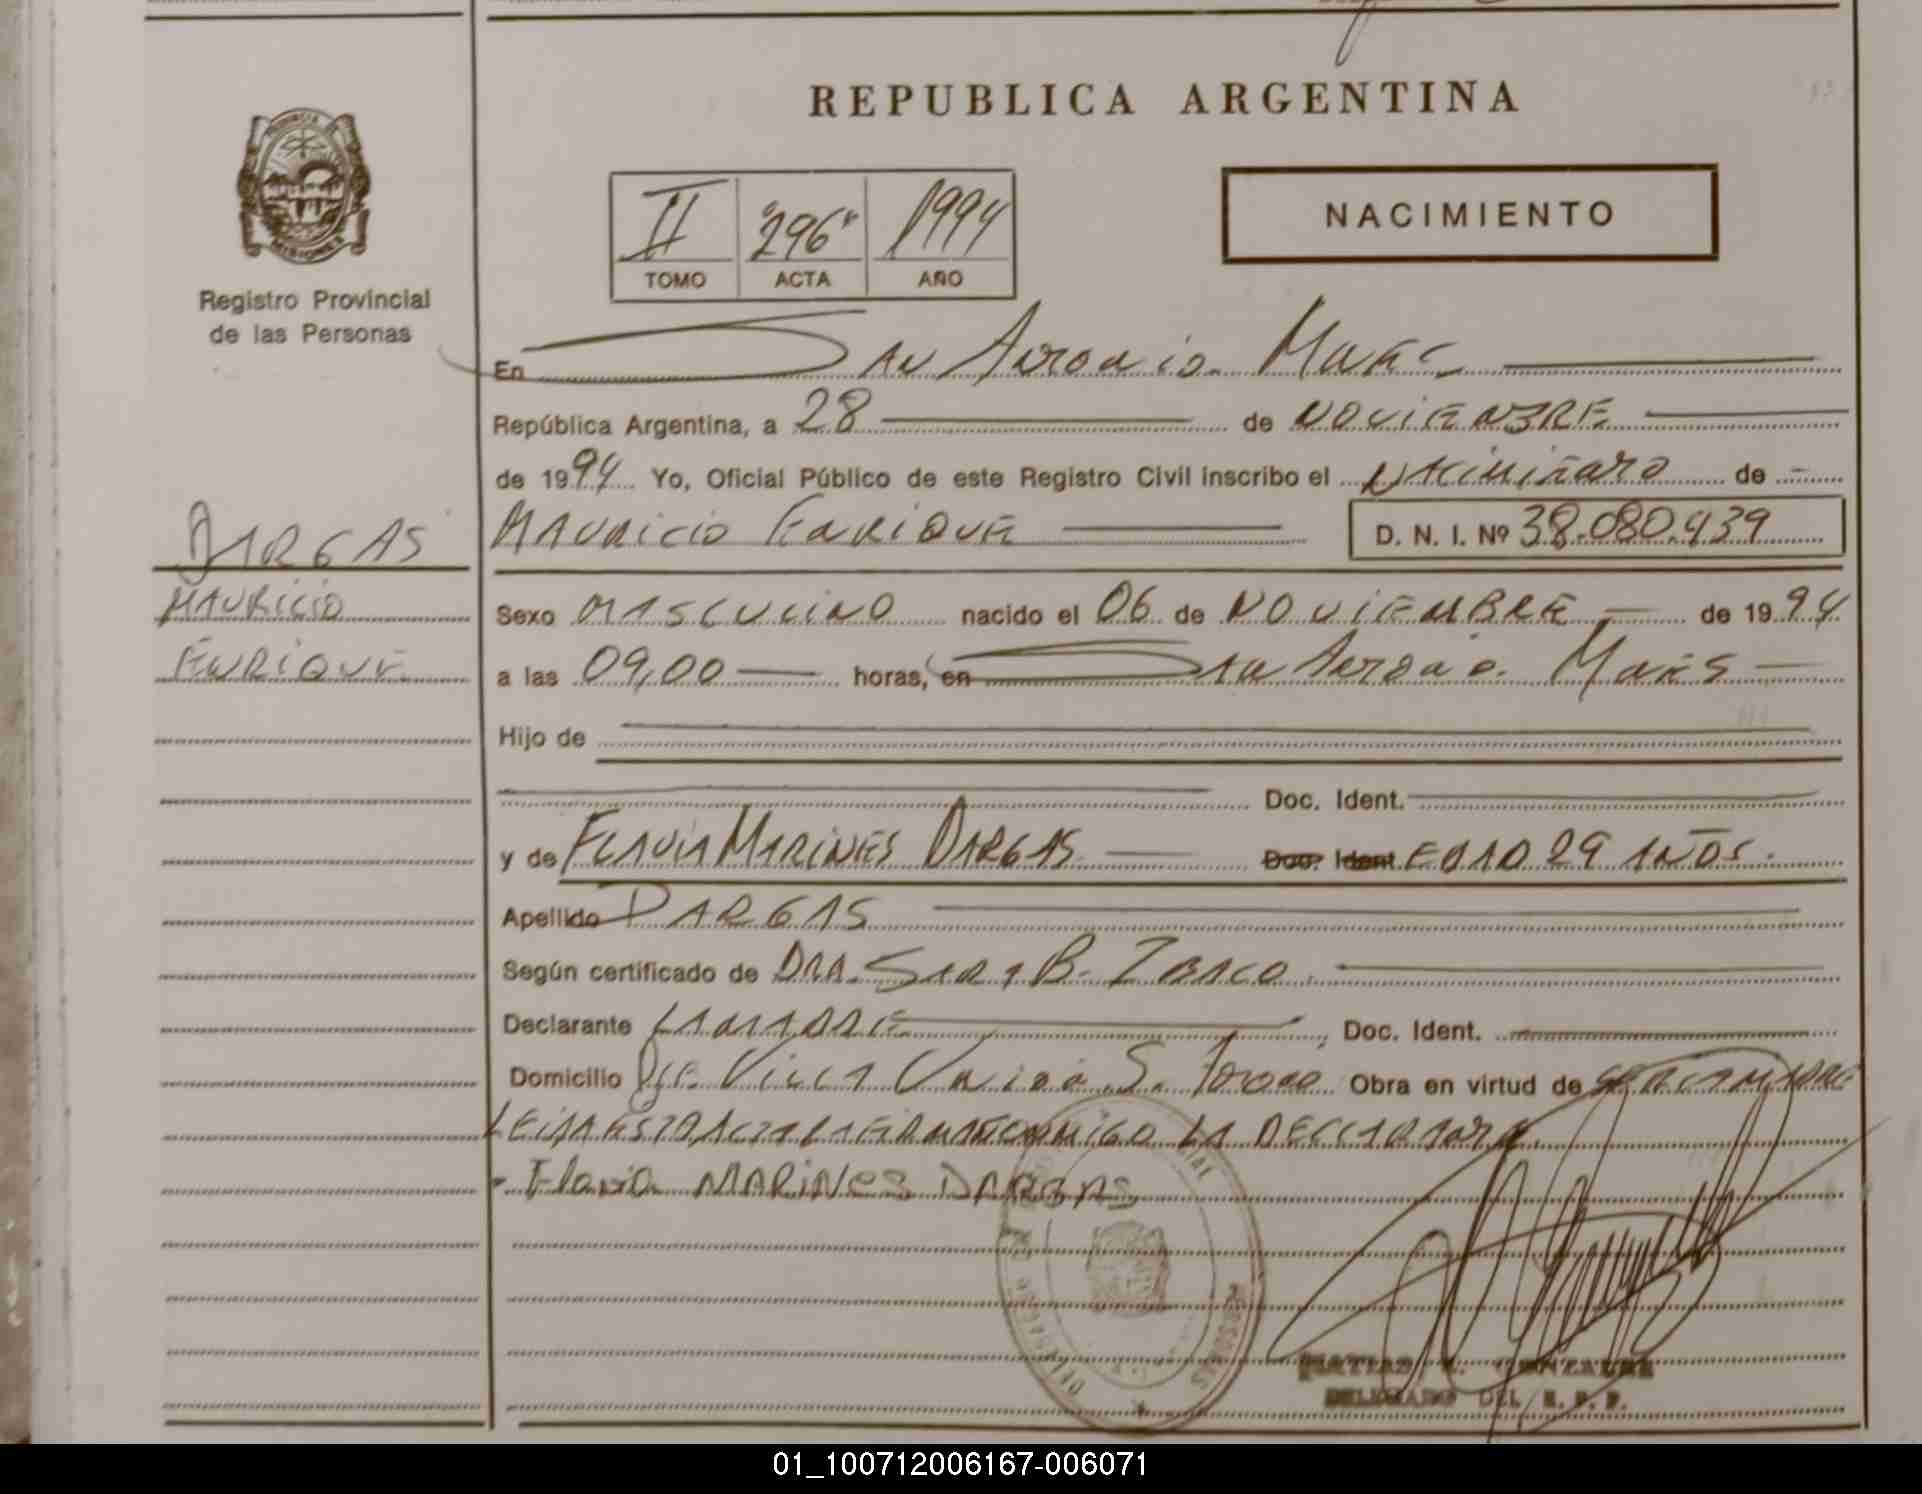 REPUBLICA ARGENTINA
PROVINCIA
MISIONES
Registro Provincial
de las Personas
II "296" 1994
TOMO ACTA AÑO
NACIMIENTO
En San Antonio. Mnes
República Argentina, a 28 de NOVIEMBRE
de 1994 Yo, Oficial Público de este Registro Civil inscribo el Nacimiento de
MAURICIO ENRIQUE D. N. I. Nº 38.080.939
DARGAS
MAURICIO
ENRIQUE
Sexo MASCULINO nacido el 06 de NOVIEMBRE de 1994
a las 09,00 horas, en San Antonio. Mnes
Hijo de
Doc. Ident.
y de FLAVIA MARINES DARGAS Doc. Ident EDAD 29 AÑOS.
Apellido DARGAS
Según certificado de DRA. SARA B.
Declarante LA MADRE, Doc. Ident.
Domicilio Villa Union S. Obra en virtud de
LEIDA ESTA ACTA LA FIRMA CONMIGO LA DECLARANTE.
Flavia MARINES DARGAS
PERSONAS
MATIAS GONZALEZ
DELEGADO DEL R. P. P.
01_100712006167-006071